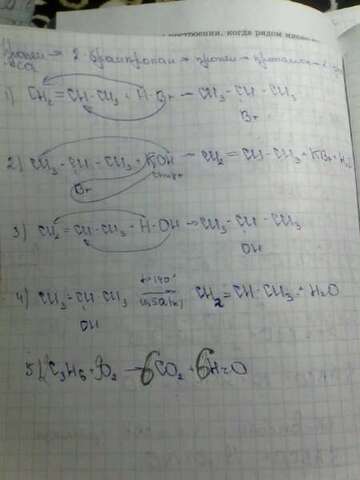 построении, когда рядом
пропен → 2-бромпропан → пропен → пропанол-2
CO2
1) CH2=CH-CH3 + H-Br → CH3-CH-CH3
Br
2) CH3-CH-CH3 + KOH → CH2=CH-CH3 + KBr + H2
Br спирт
3) CH2=CH-CH3 + H-OH → CH3-CH-CH3
OH
4) CH3-CH-CH3 t>140° H2SO4(к) CH2=CH-CH3 + H2O
OH
5) 2C3H6 + 9O2 → 6CO2 + 6H2O